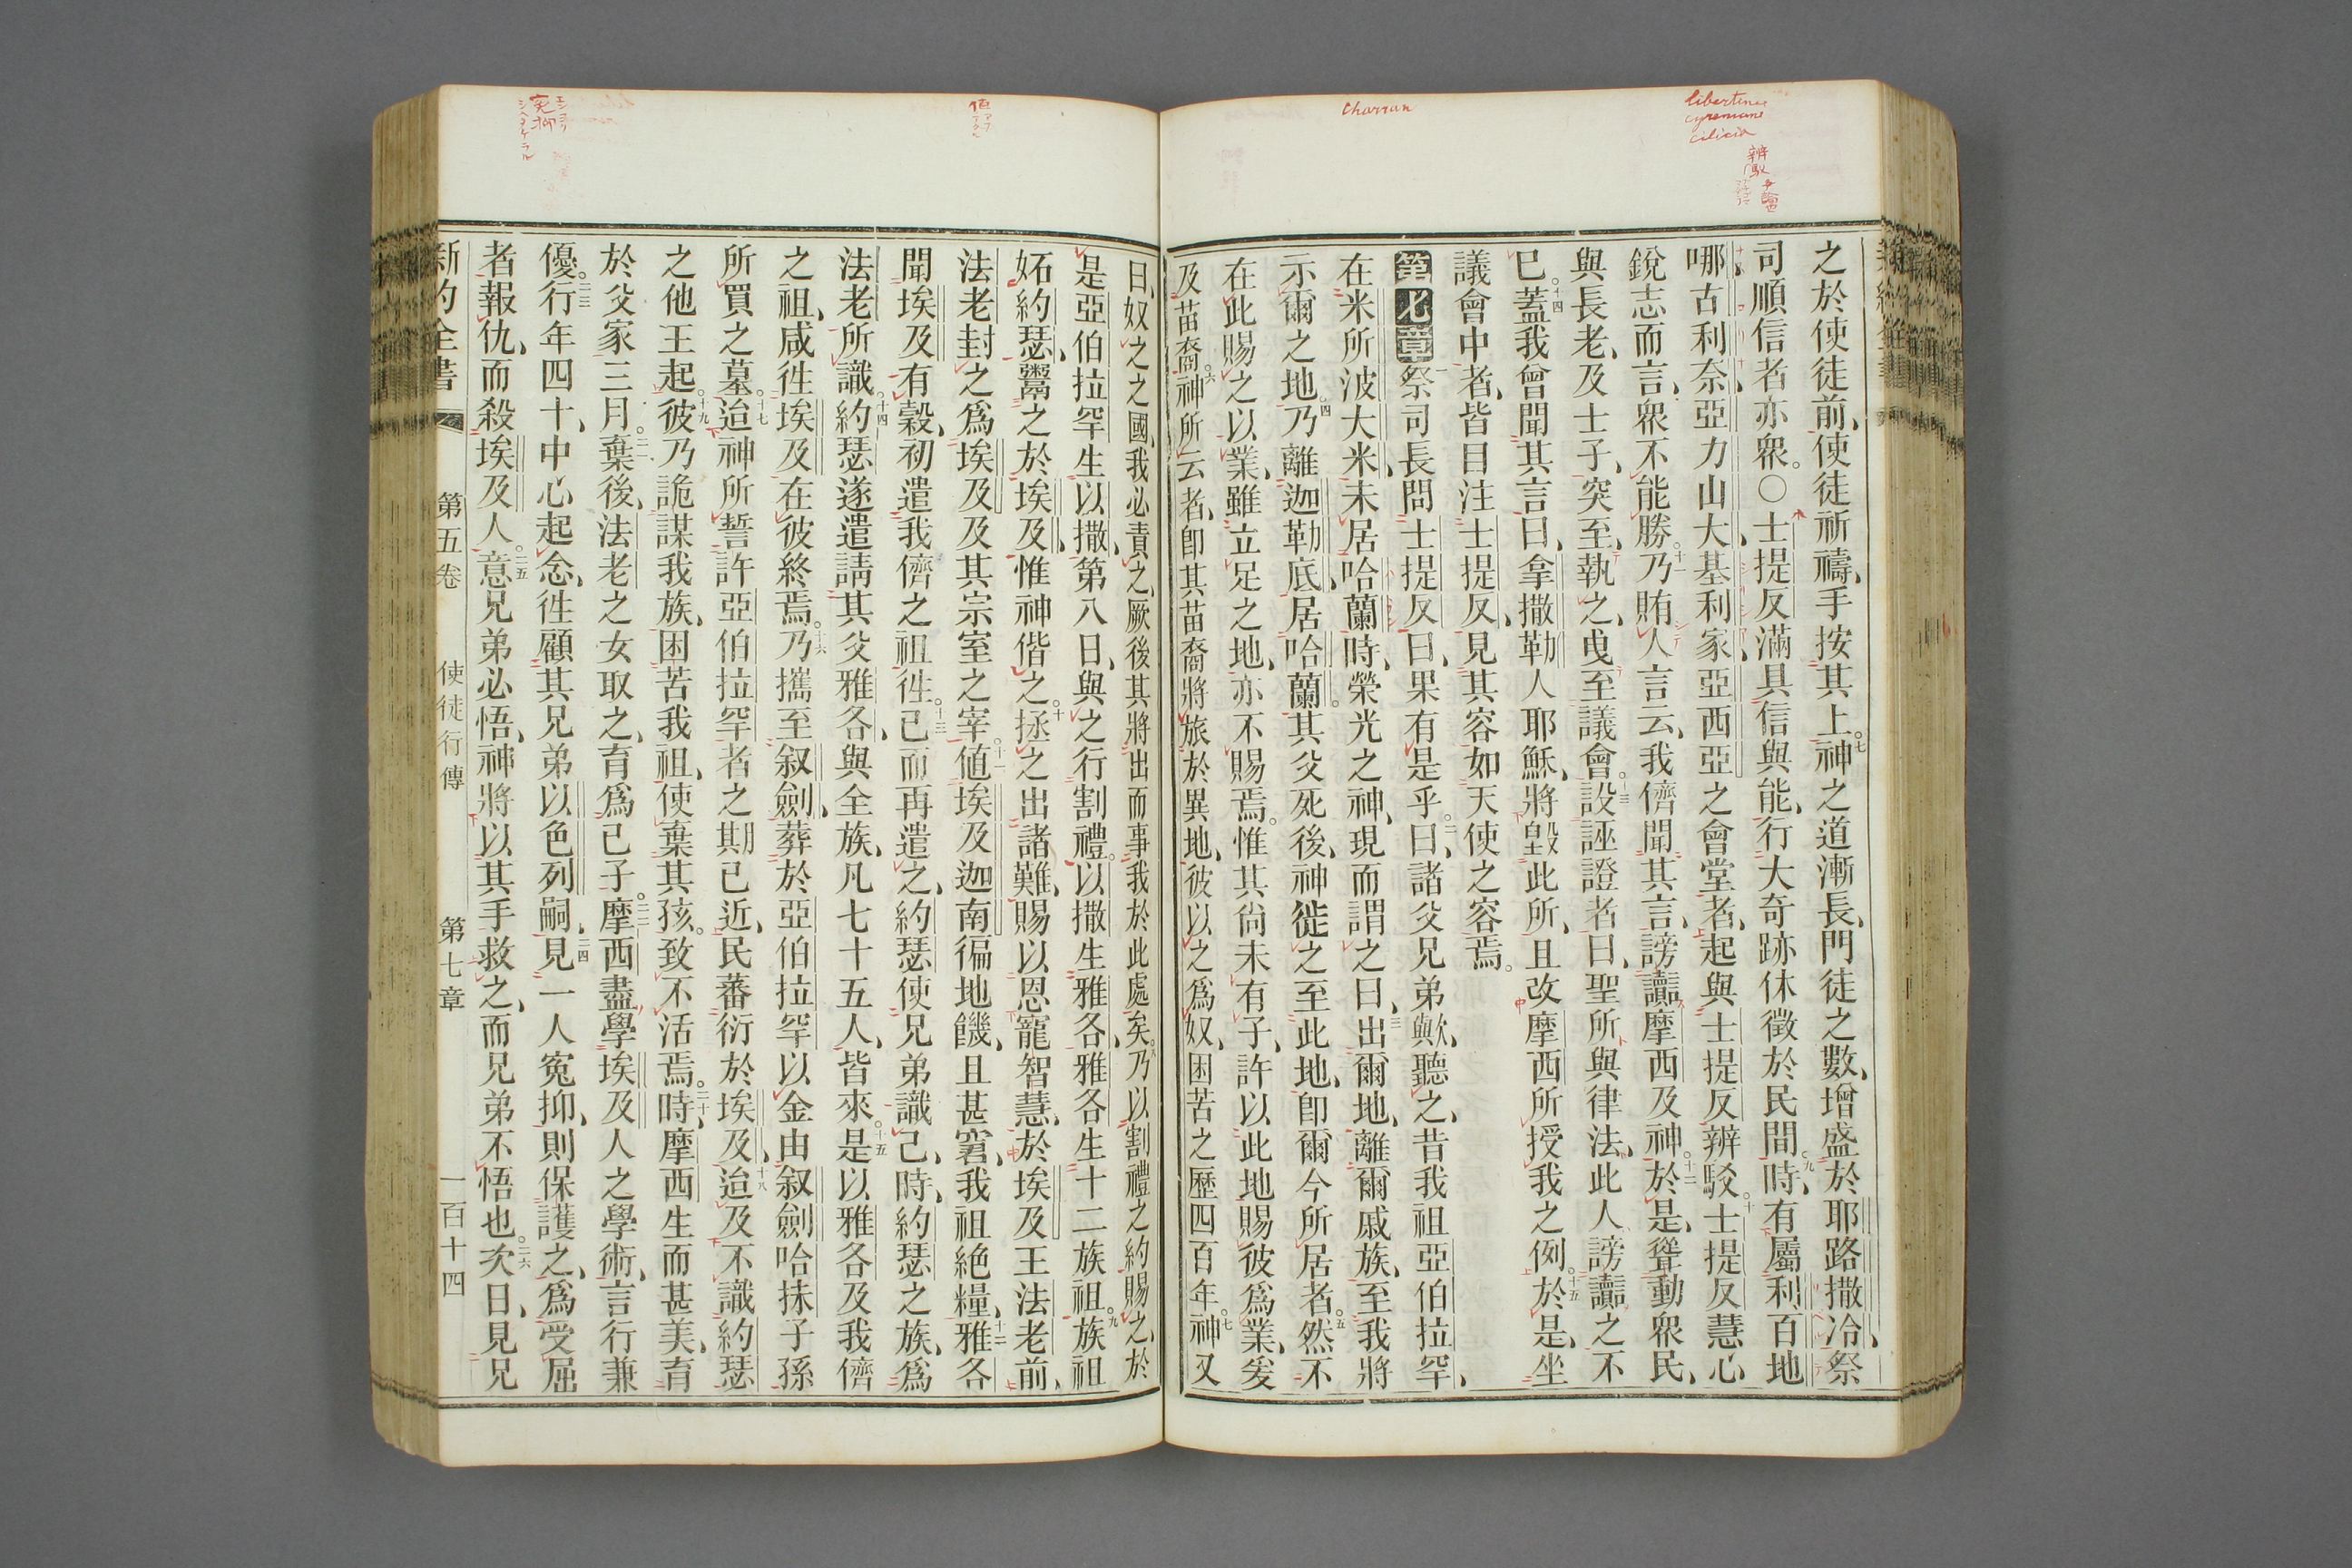 libertines
cyreniane
cilicia
辨駁
爭論也
charran
之於使徒前、使徒祈禱、手按其上。七神之道漸長、門徒之數、增盛於耶路撒冷、祭
司順信者亦衆。〇八士提反滿具信與能、行大奇跡休徵於民間。九時、有屬利百地
哪古利奈亞力山大、基利家亞西亞之會堂者、起與士提反辨駁。十士提反慧心
銳志而言、衆不能勝。十一乃賄人言云、我儕聞其言、謗讟摩西及神。十二於是、聳動衆民、
與長老、及士子、突至、執之、曵至議會。十三設誣證者曰、聖所與律法、此人謗讟之不
已。十四蓋我曾聞其言曰、拿撒勒人耶穌、將毀此所、且改摩西所授我之例。十五於是、坐
議會中者、皆目注士提反、見其容如天使之容焉。
第七章一祭司長問士提反曰、果有是乎。二曰、諸父兄弟歟、聽之、昔我祖亞伯拉罕、
在米所波大米、未居哈蘭時、榮光之神、現而謂之曰、三出爾地、離爾戚族、至我將
示爾之地。四乃離迦勒底、居哈蘭。其父死後、神徙之至此地、卽爾今所居者。五然不
在此賜之以業、雖立足之地、亦不賜焉。惟其尙未有子、許以此地賜彼爲業、爰
及苗裔。六神所云者、卽其苗裔將旅於異地、彼以之爲奴、困苦之歷四百年。七神又
曰、奴之之國、我必責之、厥後其將出而事我於此處矣。八乃以割禮之約賜之、於
是亞伯拉罕生以撒、第八日、與之行割禮。以撒生雅各、雅各生十二族祖。九族祖
妬約瑟、鬻之於埃及、惟神偕之。十拯之出諸難、賜以恩寵智慧、於埃及王法老前、
法老封之爲埃及及其宗室之宰。十一値埃及迦南徧地饑、且甚窘、我祖絶糧、十二雅各
聞埃及有穀、初遣我儕之祖徃。十三已而再遣之、約瑟使兄弟識己、時、約瑟之族、爲
法老所識。十四約瑟遂遣請其父雅各、與全族、凡七十五人、皆來。十五是以雅各及我儕
之祖、咸徃埃及、在彼終焉。十六乃攜至叙劍、葬於亞伯拉罕以金由叙劍哈抹子孫
所買之墓。十七迨神所誓許亞伯拉罕者之期已近、民蕃衍於埃及、十八迨及不識約瑟
之他王起。十九彼乃詭謀我族、困苦我祖、使棄其孩。致不活焉。二十時、摩西生而甚美、育
於父家三月。二一棄後、法老之女取之、育爲己子。二二摩西盡學埃及人之學術、言行兼
優。二三行年四十、中心起念、徃顧其兄弟以色列嗣、二四見一人寃抑、則保護之、爲受屈
者報仇、而殺埃及人。二五意兄弟必悟、神將以其手救之、而兄弟不悟也。二六次日、見兄
新約全書 第五卷 使徒行傳 第七章 一百十四